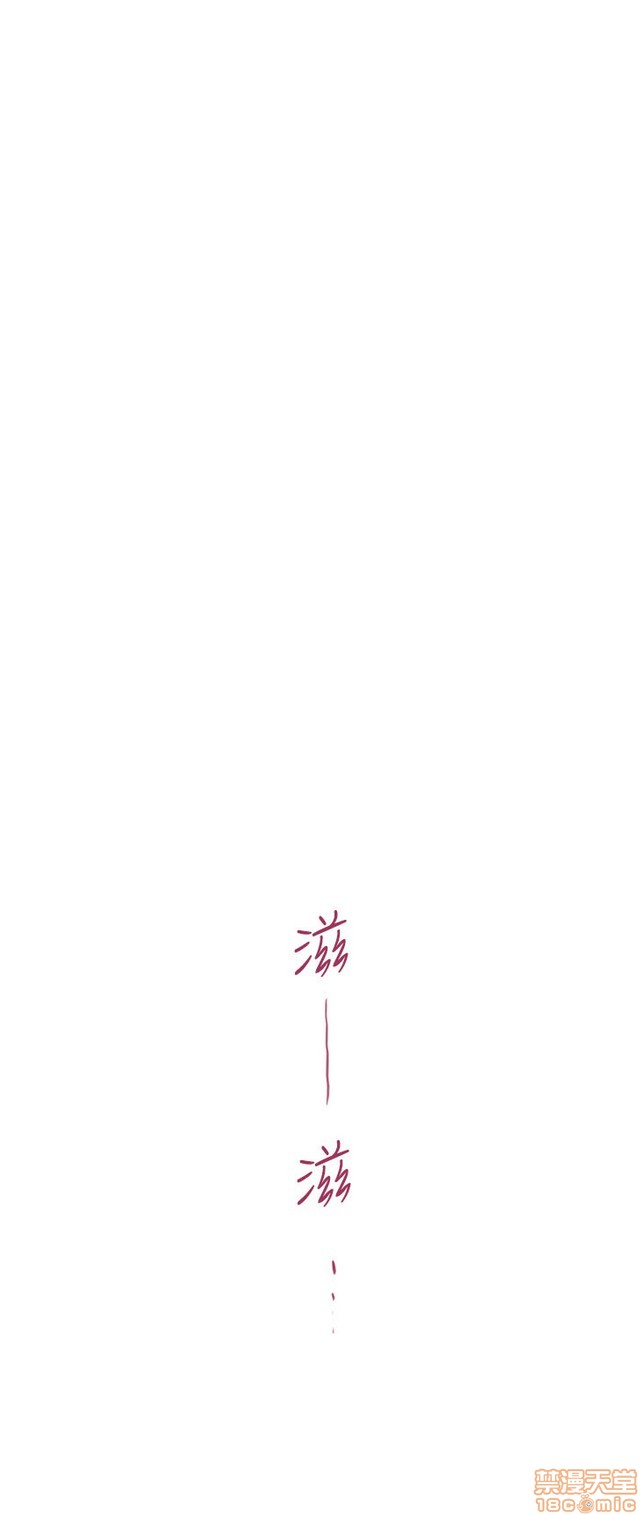 滋
—
滋
…
禁漫天堂
18comic